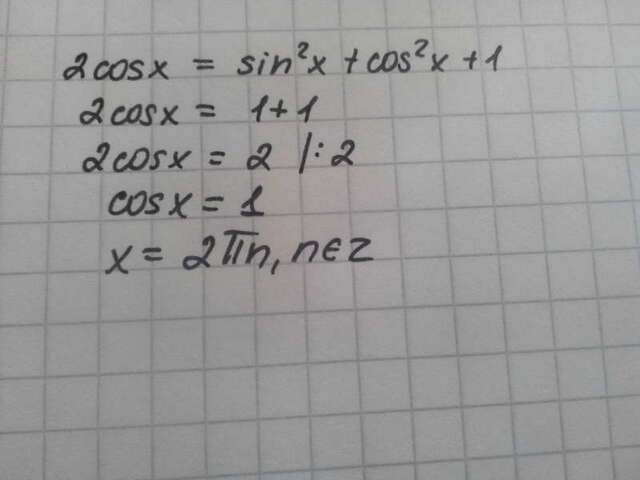 2cosx = sin²x + cos²x + 1
2cosx = 1 + 1
2cosx = 2 |:2
cosx = 1
x = 2πn, n∈z